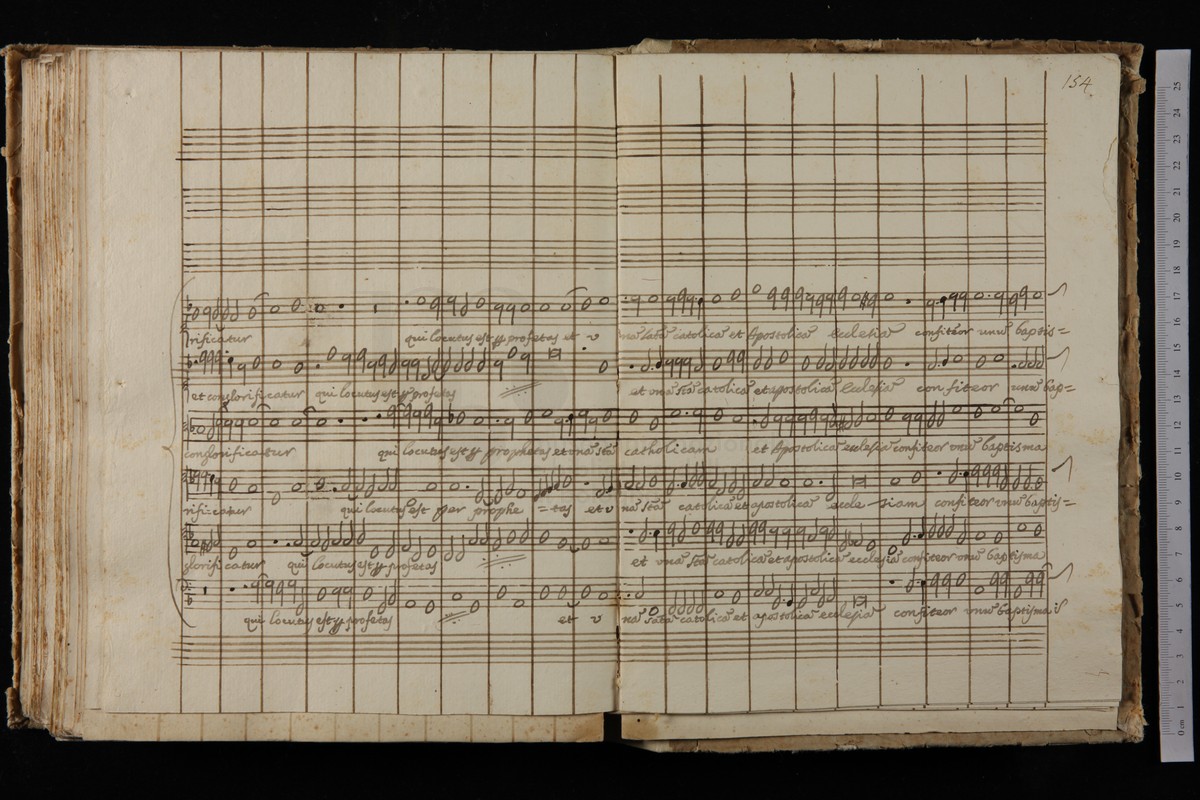 154
rificatur qui locutus est p profetas et v na sata catolica et Apostolica ecclesia confiteor unu baptis=
et conglorificatur qui locutus est p profetas et vna sta catolica et apostolica Ecclesia confiteor unu bap=
conglorificatur qui locutus est p prophetas et vna sta catholicam et Apostolica ecclesia confiteor vnu baptisma
rificatur qui locutus est per prophe = tas et v na sta catolica et apostolica eccle - siam confiteor vnu baptis=
glorificatur qui locutus est p profetas et vna sta catolica et apostolica ecclesia confiteor vnu baptisma
qui locutus est p profetas et v na sata catolica et apostolica ecclesia confiteor vnu baptisma